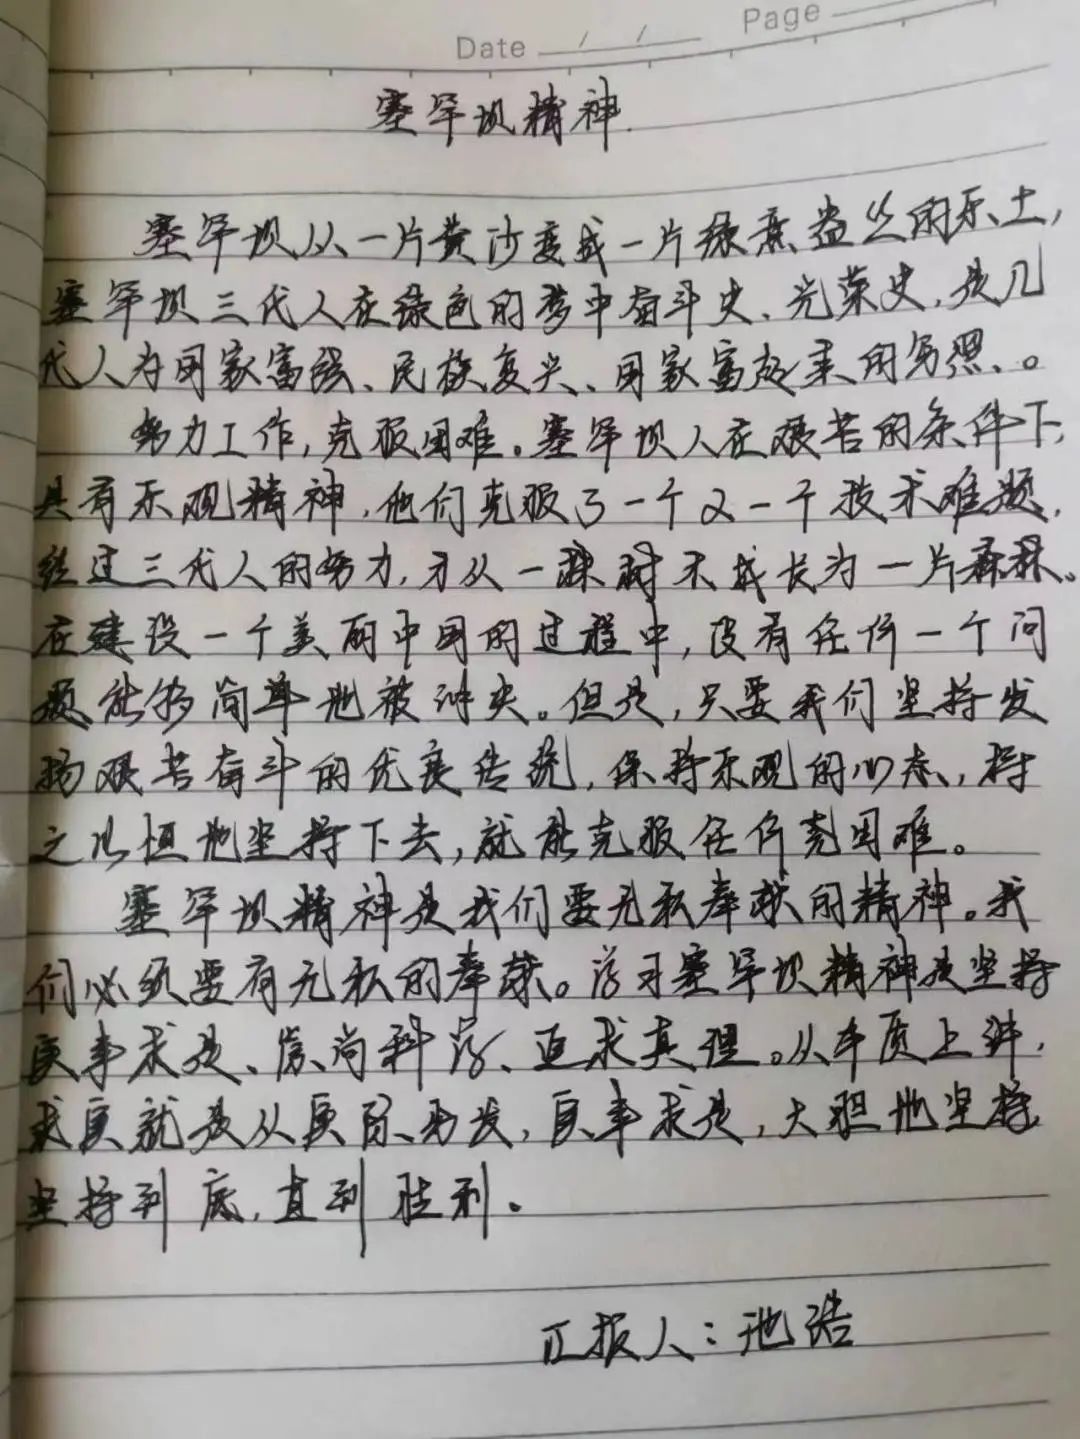 Date / /
Page
塞罕坝精神
塞罕坝从一片黄沙变成一片绿意盎丛的乐土,
塞罕坝三代人在绿色的梦中奋斗史、光荣史,是几
代人为国家富强、民族复兴、国家富起来的写照、。
努力工作,克服困难。塞罕坝人在艰苦的条件下,
具有乐观精神,他们克服了一个又一个技术难题,
经过三代人的努力,才从一棵树木成长为一片森林。
在建设一个美丽中国的过程中,没有任何一个问
题能够简单地被冲决。但是,只要我们坚持发
扬艰苦奋斗的优良传统,保持乐观的心态,持
之以恒地坚持下去,就能克服任何克困难。
塞罕坝精神是我们要无私奉献的精神。我
们必须要有无私的奉献。学习塞罕坝精神是坚持
实事求是、崇尚科学、追求真理。从本质上讲,
求实就是从实际出发,实事求是,大胆地坚持,
坚持到底,直到胜利。
汇报人:池浩